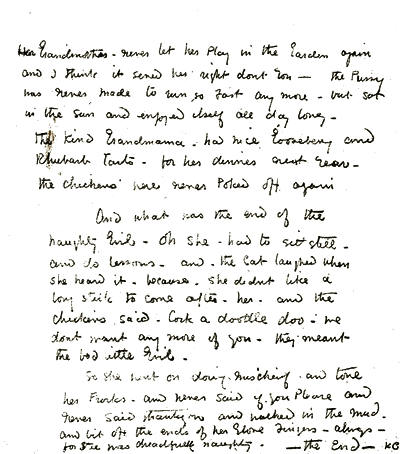 Her Grandmother - never let her Play in the Garden again
and I think it served her right dont you - the Pussy
was never made to run so fast any more - but sat
in the sun and enjoyed itself all day long -
The Kind Grandmama - had nice Gooseberry and
Rhubarb Tarts - for her dinner next year -
the chickens were never Poked off again
And what was the end of the
naughty Girl - Oh she - had to sit still -
and do lessons - and - the Cat laughed when
she heard it - because - she didnt like a
long stick to come after - her - and the
chickens said - Cock a doodle doo - we
dont want any more of you - they meant
the bad little Girl -
So she went on doing mischief - and tore
her Frocks - and never said if you Please and
never said thankyou and walked in the mud -
and bit off the ends of her Glove Fingers - always -
for she was dreadfully naughty - - the End - KG